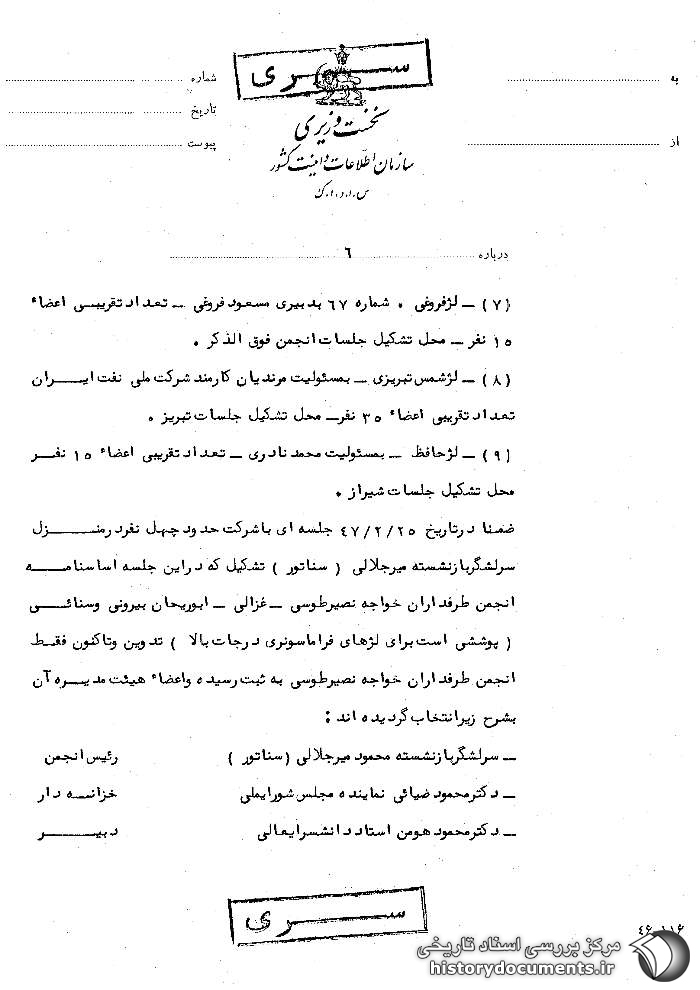 سری
به
شماره
نخست وزیری
تاریخ
سازمان اطلاعات و امنیت کشور
از
پیوست
س.ا.و.ا.ک
درباره ۶
(۷) ــ لژفروغی . شماره ۶۷ بدبیری مسعود فروغی ــ تعداد تقریبی اعضاء
۱۵ نفر ــ محل تشکیل جلسات انجمن فوق الذکر .
(۸) ــ لژشمس تبریزی ــ بمسئولیت مرندیان کارمند شرکت ملی نفت ایران
تعداد تقریبی اعضاء ۳۵ نفرــ محل تشکیل جلسات تبریز .
(۹) ــ لژحافظ ــ بمسئولیت محمد نادری ــ تعداد تقریبی اعضاء ۱۵ نفر
محل تشکیل جلسات شیراز .
ضمنا درتاریخ ۴۷/۲/۲۵ جلسه ای باشرکت حدود چهل نفردرمنزل
سرلشگربازنشسته میرجلالی ( سناتور ) تشکیل که دراین جلسه اساسنامه
انجمن طرفداران خواجه نصیرطوسی ــ غزالی ــ ابوریحان بیرونی وسنائی
( پوششی است برای لژهای فراماسونری درجات بالا ) تدوین وتاکنون فقط
انجمن طرفداران خواجه نصیرطوسی به ثبت رسیده واعضاء هیئت مدیره آن
بشرح زیرانتخاب گردیده اند :
ــ سرلشگربازنشسته محمود میرجلالی (سناتور ) رئیس انجمن
ــ دکترمحمود ضیائی نماینده مجلس شورایملی خزانه دار
ــ دکترمحمود هومن استاد دانشسرایعالی دبیر
سری
۴۶_۱۱۶
مرکز بررسی اسناد تاریخی
historydocuments.ir